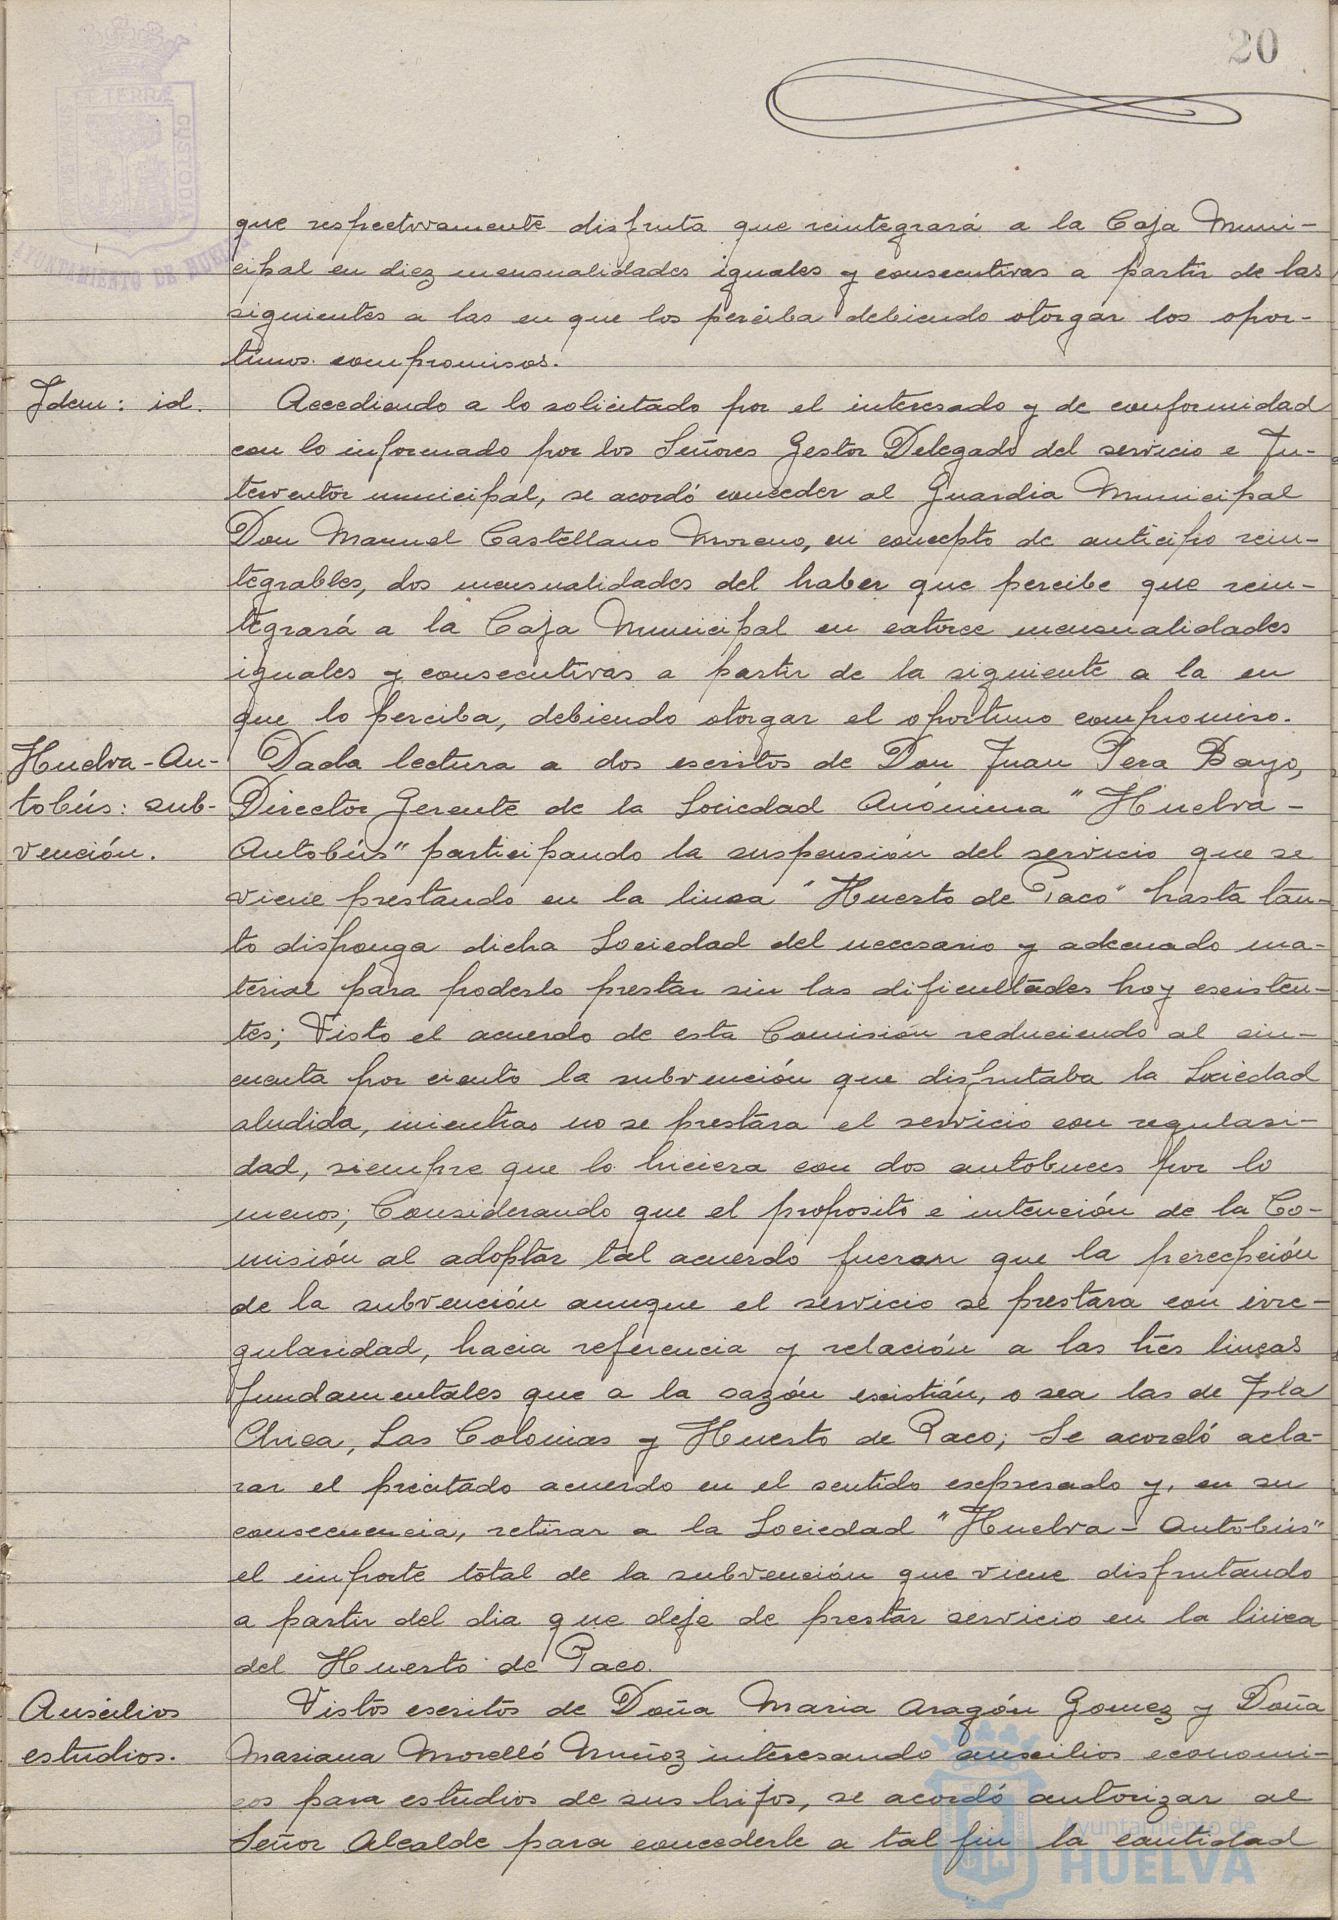 20
PORTUS MARIS ET TERRÆ CUSTODIA
AYUNTAMIENTO DE HUELVA
que respectivamente disfruta que reintegrará a la Caja Muni-
cipal en diez mensualidades iguales y consecutivas a partir de las
siguientes a las en que los perciba debiendo otorgar los opor-
tunos compromisos.
Idem: id.
Accediendo a lo solicitado por el interesado y de conformidad
con lo informado por los Señores Gestor Delegado del servicio e In-
terventor municipal, se acordó conceder al Guardia Municipal
Don Manuel Castellano Moreno, en concepto de anticipo rein-
tegrables, dos mensualidades del haber que percibe que rein-
tegrará a la Caja Municipal en catorce mensualidades
iguales y consecutivas a partir de la siguiente a la en
que lo perciba, debiendo otorgar el oportuno compromiso.
Huelva-Au-
tobús: sub-
vención.
Dada lectura a dos escritos de Don Juan Pera Bayo,
Director Gerente de la Sociedad Anónima "Huelva-
Autobús" participando la suspensión del servicio que se
viene prestando en la linea "Huerto de Paco" hasta tan-
to disponga dicha Sociedad del necesario y adecuado ma-
terial para poderlo prestar sin las dificultades hoy existen-
tes; Visto el acuerdo de esta Comisión reduciendo al cin-
cuenta por ciento la subvención que disfrutaba la Sociedad
aludida, mientras no se prestara el servicio con regulari-
dad, siempre que lo hiciera con dos autobuces por lo
menos; Considerando que el proposito e intención de la Co-
misión al adoptar tal acuerdo fueron que la percepción
de la subvención aunque el servicio se prestara con irre-
gularidad, hacia referencia y relación a las tres lineas
fundamentales que a la sazón existián, o sea las de Isla
Chica, Las Colonias y Huerto de Paco; Se acordó acla-
rar el precitado acuerdo en el sentido expresado y, en su
consecuencia, retirar a la Sociedad "Huelva-Autobús"
el importe total de la subvención que viene disfrutando
a partir del dia que deje de prestar servicio en la linea
del Huerto de Paco.
Auxilios
estudios.
Vistos escritos de Doña Maria Aragón Gomez y Doña
Mariana Morelló Muñoz interesando auxilios economi-
cos para estudios de sus hijos, se acordó autorizar al
Señor Alcalde para concederle a tal fin la cantidad
Ayuntamiento de
HUELVA